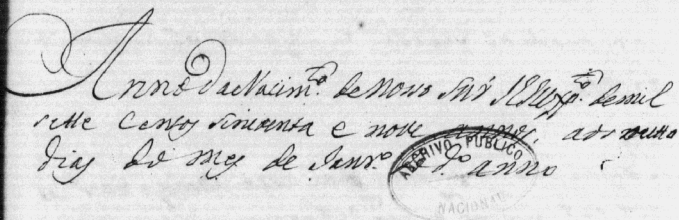 Anno do Nacim.to de Nosso Snr̃ JESUxp.to de mil
sette centos sincoenta e nove annos, aos outto
dias do mes de Janr.o do d.o anno
ARCHIVO PUBLICO
NACIONAL